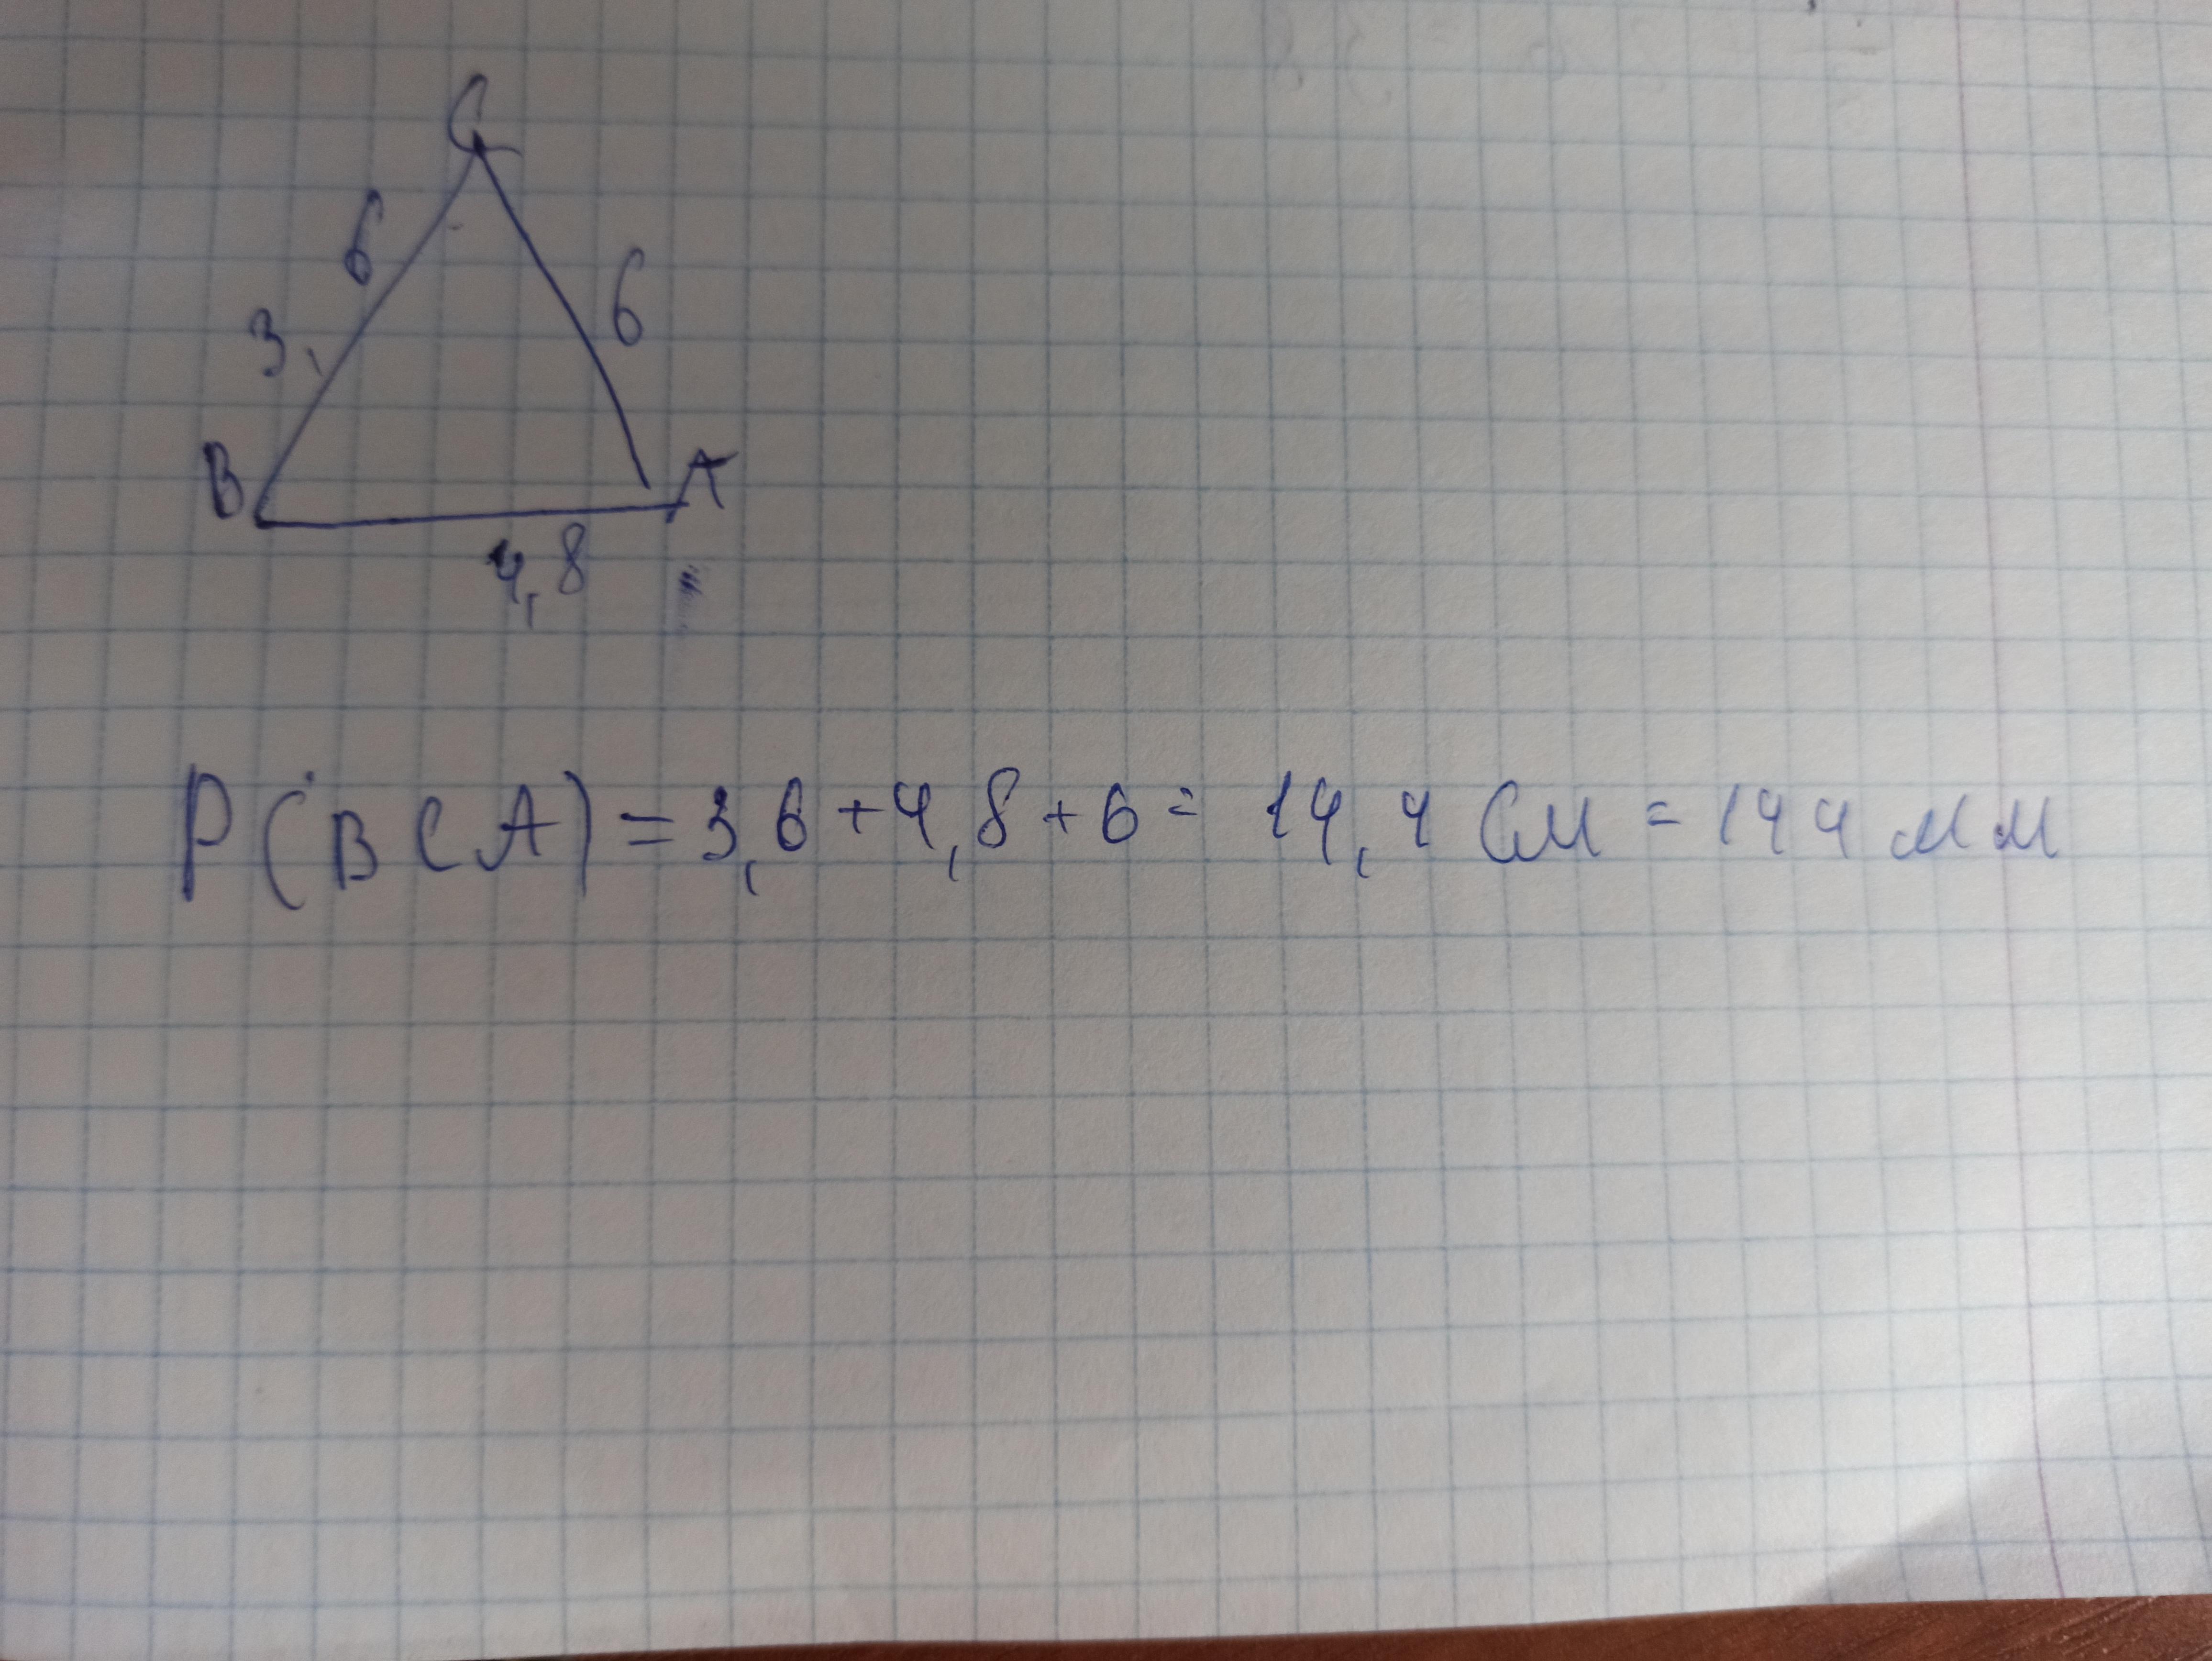 C
6
6
3,
B
A
4,8
P(BCA) = 3,6 + 4,8 + 6 = 14,4 см = 144 мм